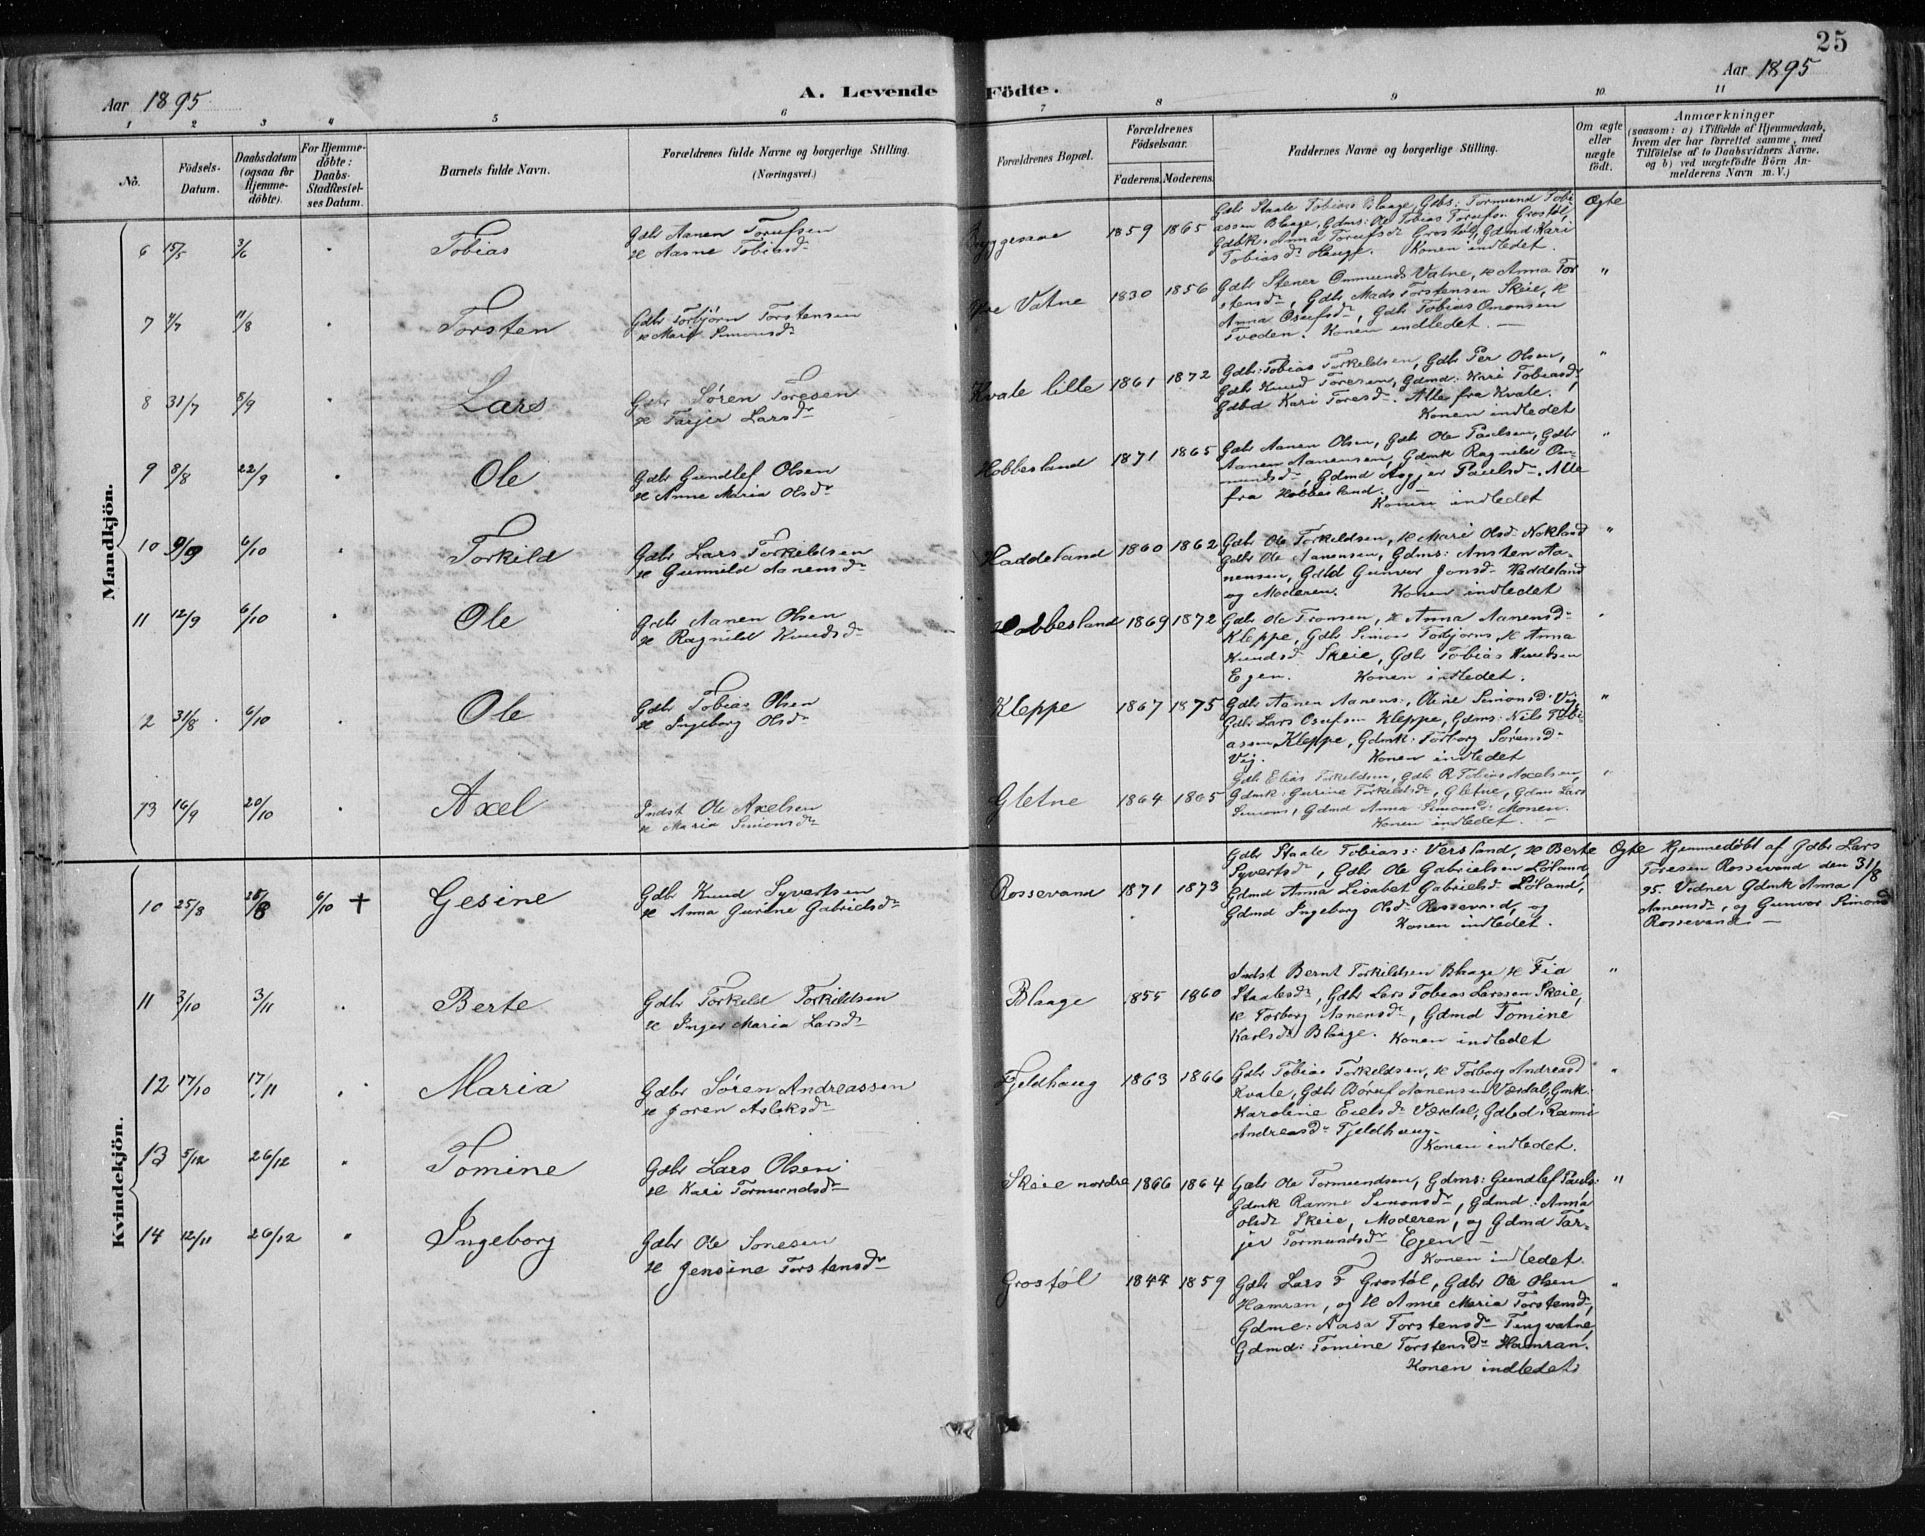 25
Aar 1895
A. Levende Födte.
Aar 1895
1 2 3 4 5 6 7 8 9 10 11
No.
Födsels-Datum.
Daabsdatum (ogsaa for Hjemme-döbte).
For Hjemme-döbte: Daabs-Stadfæstel-ses Datum.
Barnets fulde Navn.
Forældrenes fulde Navne og borgerlige Stilling.
(Næringsvei.)
Forældrenes Bopæl.
Forældrenes Födselsaar.
Faderens. Moderens.
Faddernes Navne og borgerlige Stilling.
Om ægte eller uægte födt.
Anmærkninger
(saasom: a) i Tilfælde af Hjemmedaab,
hvem der har forrettet samme, med
Tilföielse af to Daabsvidners Navne,
og b) ved uægtefödte Börn An-
melderens Navn m. V.)
Mandkjön.
6 15/5 3/6 " Tobias
Gdbr Aanen Torufsen
& Aasne Tobiasdr
1859 1865
Gdbr Staale Tobiass Blaage, Gdbs: Tormund Tobi
assen Blaage, Gdms: Ole Tobias Torufsn Grostøl,
Gdbk: Anna Torufsdr Grostøl, Gdmd: Kari
Tobiasdr Hauge. Konen indledet.
Ægte
7 4/7 11/8 " Torsten
Gdbr Torbjørn Torstensen
& Mari Simonsdr
Øvre Vatne 1830 1856
Gdbr Stener Ommunds Vatne, & Anna Tor
stensdr, Gdbr Mads Torstensen Skeie, &
Anna Osufsdr, Gdbr Tobias Omonsen
Tveden. Konen indledet. —
"
8 31/7 8/9 " Lars
Gdbr Søren Toresen
& Tarjer Larsdr
Kvale lille 1861 1872
Gdbr: Tobias Torkeldsen, Gdbr Per Olsen,
Gdbr Knud Toresen, Gdmd: Kari Tobiasdr,
Gdbd Kari Toresdr. Alle fra Kvale.
Konen indledet
"
9 8/8 22/9 " Ole
Gdbr Gundlef Olsen
& Anne Maria Olsdr
Hobbesland 1871 1865
Gdbr Aanen Olsen, Gdbr Ole Paulsen, Gdbr
Aanen Aanensen, Gdmk Ragnild Om-
mundsdr, Gdmd Asgjer Paulsdr. Alle
fra Hobbesland.
Konen indledet
"
10 9/9 6/10 " Torkild
Gdbr Lars Torkildsen
& Gunnild Aanensdr
Haddeland 1860 1862
Gdbr Ole Torkildsen, & Mari Olsd Nokland
Gdbr Ole Aanensen, Gdms: Ansten Aa-
nensen, Gdbd Gunvor Jonsdr Haddeland
og Moderen. Konen indledet
"
11 12/9 6/10 " Ole
Gdbr Aanen Olsen
& Ragnild Knudsdr
Hobbesland 1869 1872
Gdbr Ole Tronsen, & Anna Aanensdr
Kleppe, Gdbr Simon Torbjørns, & Anna
Knudsdr Skeie, Gdbr Tobias Knudsen
Egen. Konen indledet.
"
2 31/8 6/10 " Ole
Gdbr Tobias Olsen
& Ingeborg Olsdr
Kleppe 1867 1875
Gdbr Aanen Aanens:, Oline Simonsd Vij,
Gdbr Lars Osufsen Kleppe, Gdms: Nils Tobi-
assen Kleppe, Gdmk: Torborg Sørensd-
Vij. Konen indledet
"
13 16/9 20/10 " Axel
Indst Ole Axelsen
& Maria Simonsdr
Gletne 1864 1865
Gdbr Elias Torkeldsen, Gdbr R. Tobias Axelsen,
Gdmk: Gurine Torkeldsdr, Gletne, Gdms Lars
Simons, Gdmd Anna Simonsd: Monen.
Konen indledet. —
"
Kvindekjön.
10 25/8 25/8 6/10 + Gesine
Gdbr Knud Syvertsen
& Anna Gurine Gabrielsdr
Rossevand 1871 1873
Gdbr Staale Tobiass: Versland, & Berte
Syvertsdr, Gdbr Ole Gabrielsen Løland,
Gdmd Anna Lisabet Gabrielsd Løland,
Gdmd Ingeborg Olsd Rossevand, og
Konen indledet.
Ægte
Hjemmedöbt af Gdbr Lars
Toresen Rossevand den 31/8
95. Vidner Gdmk Anna
Aanensdr, og Gunvor Simonsd
Rossevand —
11 3/10 3/11 " Berte
Gdbr Torkeld Torkildsen
& Inger Maria Larsdr
Blaage 1855 1860
Indst Bernt Torkildsen Blaage & Fia
Staalesdr, Gdbr Lars Tobias Larssen Skeie,
& Torborg Aanensdr, Gdmd Tomine
Karlsdr Blaage. Konen indledet
"
12 17/10 17/11 " Maria
Gdbr Søren Andreassen
& Joren Aslaksdr
Fjeldhaug 1863 1866
Gdbr Tobias Torkeldsen, & Torborg Andreasd
Kvale, Gdbr Børuf Aanensen Værdal, Gmk:
Karoline Eielsdr Værdal, Gdbd: Ranni
Andreasdr Fjeldhaug.
Konen indledet.
"
13 5/12 26/12 " Tomine
Gdbr Lars Olsen
& Kari Tormundsdr
Skeie nordre 1866 1864
Gdbr Ole Tormundsen, Gdms: Gundlef Pauls:
Gdmk Ranne Simonsdr, Gdmd: Anna
Olsdr Skeie, Moderen, og Gdmd Tar-
jer Tormundsdr Egen —
Konen indledet.
"
14 12/11 26/12 " Ingeborg
Gdbr Ole Sonesen
& Jensine Torstensdr
Grostøl 1844 1859
Gdbr Lars T Grostøl, Gdbr Ole Olsen
Hamran, og & Anne Maria Torstensdr,
Gdme: Aasa Torstensdr Tingvatne,
Gdmd: Tomine Torstensdr Hamran.
Konen indledet.
"